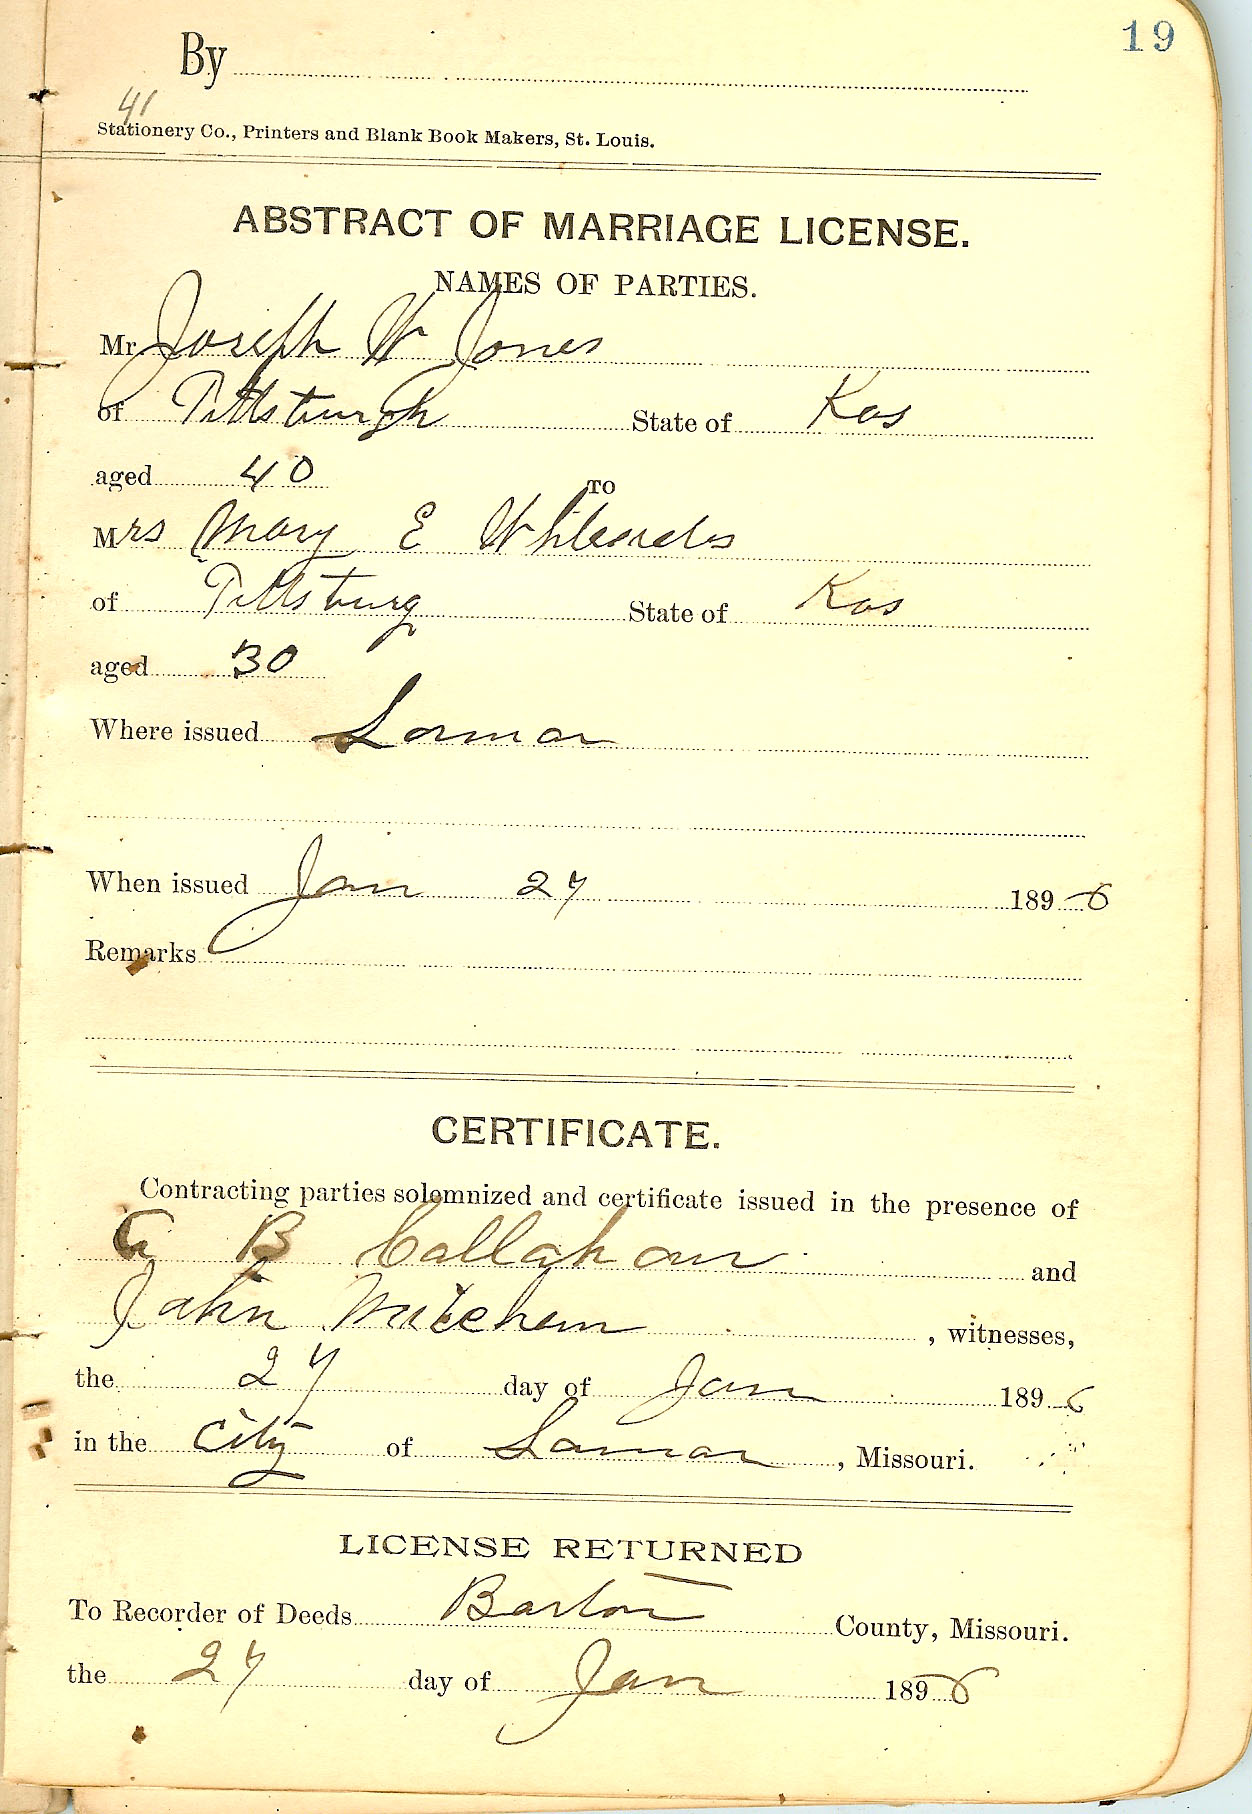 19
By
41
Stationery Co., Printers and Blank Book Makers, St. Louis.
ABSTRACT OF MARRIAGE LICENSE.
NAMES OF PARTIES.
Mr Joseph W Jones
of Pittsburgh State of Kas
aged 40
TO
Mrs Mary E
of Pittsburg State of Kas
aged 30
Where issued Lamar
When issued Jan 27 1896
Remarks
CERTIFICATE.
Contracting parties solemnized and certificate issued in the presence of
B Callahan and
John Mitchem , witnesses,
the 27 day of Jan 1896
in the City of Lamar , Missouri.
LICENSE RETURNED
To Recorder of Deeds Barton County, Missouri.
the 27 day of Jan 1896